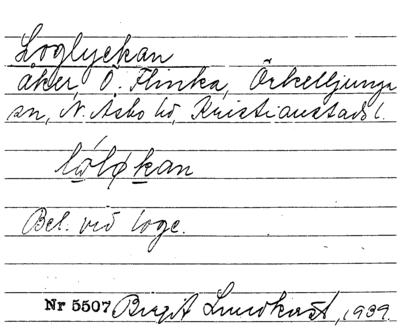 Loglyckan
åker, Ö. Flinka, Örkelljunga
sn, N. Åsbo hd, Kristianstads l.
lǫ́lø̨kan
Bel. vid loge.
Nr 5507 Birgit Lundkvist, 1939.